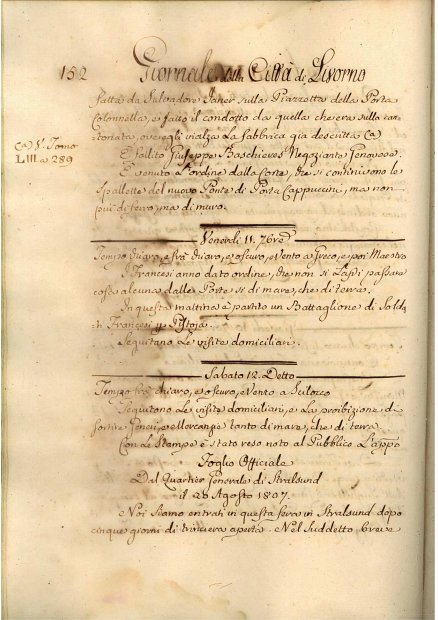 152 Giornale della Città di Livorno
fatta da Salvadore Janer sulla Piazzetta della Porta
Colonnella, e fatto il condotto da quella che era sulla
ove egli rialza la fabbrica già descritta Ca
Ca V. Tomo
LIII a 289
È fallito Giuseppe Baschieres Negoziante Genovese.
È venuto l'ordine dalla Corte, che si continuino le
spallette del nuovo Ponte di Porta Cappuccini, ma non
più di terra, ma di muro.
Venerdì 11. 7bre
Tempo chiaro, e frà chiaro, e oscuro, e Vento a Greco, e poi Maestro
I Francesi anno dato ordine, che non si Lasci passare
cosa alcuna dalle Porte sì di mare, che di terra.
In questa mattina è partito un Battaglione di Solda
ti Francesi p Pistoja.
Seguitano Le visite domiciliari.
Sabato 12. Detto
Tempo frà chiaro, e oscuro, e Vento a Scilocco
Seguitano Le visite domiciliari, e La proibizione di
sortire Generi, e Mercanzie tanto di mare, che di terra.
Con Le Stampe è stato reso noto al Pubblico L'appo
Foglio Officiale
Dal Quartier Generale di Stralsund
il 20 Agosto 1807.
Noi siamo entrati in questa sera in Stralsund dopo
cinque giorni di trinciera aperta. Nel suddetto breve